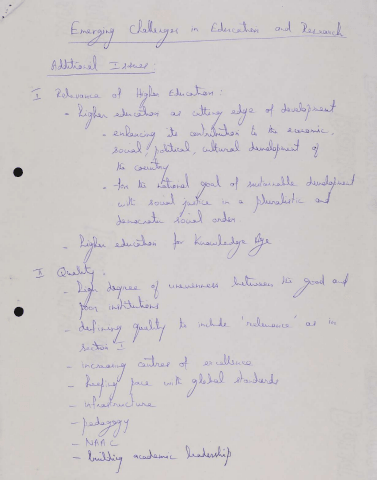 Emerging Challenges in Education and Research
Additional Issues:
I Relevance of Higher Education:
- higher education as cutting edge of development
- enhancing its contribution to the economic,
social, political, cultural development of
the country
- for the national goal of sustainable development
with social justice in a pluralistic and
democratic social order
- higher education for Knowledge Age
II Quality:
- high degree of unevenness between the good and
poor institutions
- defining quality to include 'relevance' as in
section I
- increasing centres of excellence
- keeping pace with global standards
- infrastructure
- pedagogy
- NAAC
- building academic leadership